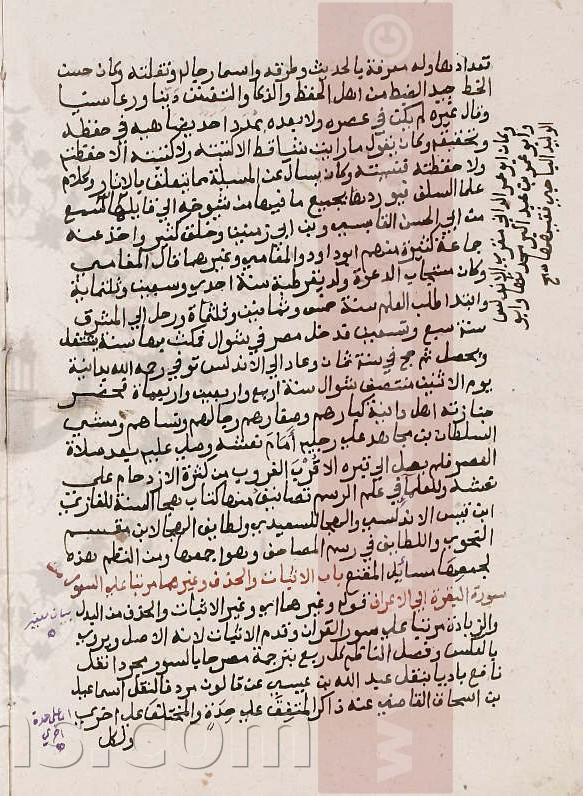 تعدادها وله معرفة بالحديث وطرقه واسما رجاله ونقلته وكان حسن
الخط جيد الضبط من اهل الحفظ والذكا والتفنن دينا ورعا سنيا
وقال غيره لم يكن في عصره ولا بعده بمدد احد يضاهيه في حفظه
وتحقيقه وكان يقول ما رايت شيا قط الا كتبته ولا كتبته الا حفظته
ولا حفظته فنسيته وكان يسال عن المسيلة مما يتعلق بالاثار وكلام
علما السلف فيوردها بجميع ما فيها من شيوخه الي قايلها سمع
من ابي الحسن القابسي وبن ابي زمنين وخلق كثير واخذ عنه
جماعة كثيرة منهم ابو داود والمغامي وغيرهما قال المغامي
وكان مستجاب الدعوة ولد بقرطبة سنة احدي وسبعين وثلثماية
وابتدا طلب العلم سنة خمس وثمانين وثلثماية ورحل الي المشرق
سنة سبع وتسعين فدخل مصر في شوال فمكث بها سنة يشتغل
ويحصل ثم حج في سنة ثمان وعاد الي الاندلس توفي رحمه الله بدانية
يوم الاثنين منتصف شوال سنة اربع واربعين واربعماية فحضر
جنازته اهل دانية كبارهم وصغارهم رجالهم ونساهم ومشي
السلطان بن مجاهد علي رجليه امام نعشه وصلي عليه بعد صلاة
العصر فلم يصل الي قبره الا قرب الغروب من كثرة الازدحام علي
نعشه وللعلما في علم الرسم تصانيف منها كتاب هجا السنة للغازي
ابن قيس الاندلسي والهجا للسعيدي ولطايف الهجا لابن مقسم
النحوي واللطايف في رسم المصاحف وهو اجمعها ومن النظم بهذه
لجمعها مسائل المقنع باب الاثبات والحذف وغيرهما مرتبا علي السور من
سورة البقرة الي الاعراف قوله وغيرهما اي وغير الاثبات والحذف من البدل
والزيادة مرتبا علي سور القران وقدم الاثبات لانه الاصل ويروي
بالعكس وفصل الناظم كل ربع بترجمة مصرحا بالسور مجردا نقل
نافع باديا بنقل عبد الله بن عيسي عن قالون مردفا لنقل اسماعيل
بن اسحاق القاضي عنه ذاكر المتفق علي حدة والمختلف علي اخري
ولكل
وكان ابو عمر الداني مقري الاندلس
وابو عمر بن عبد البر محدثها وابو
الوليد الباجي فقيهها صح